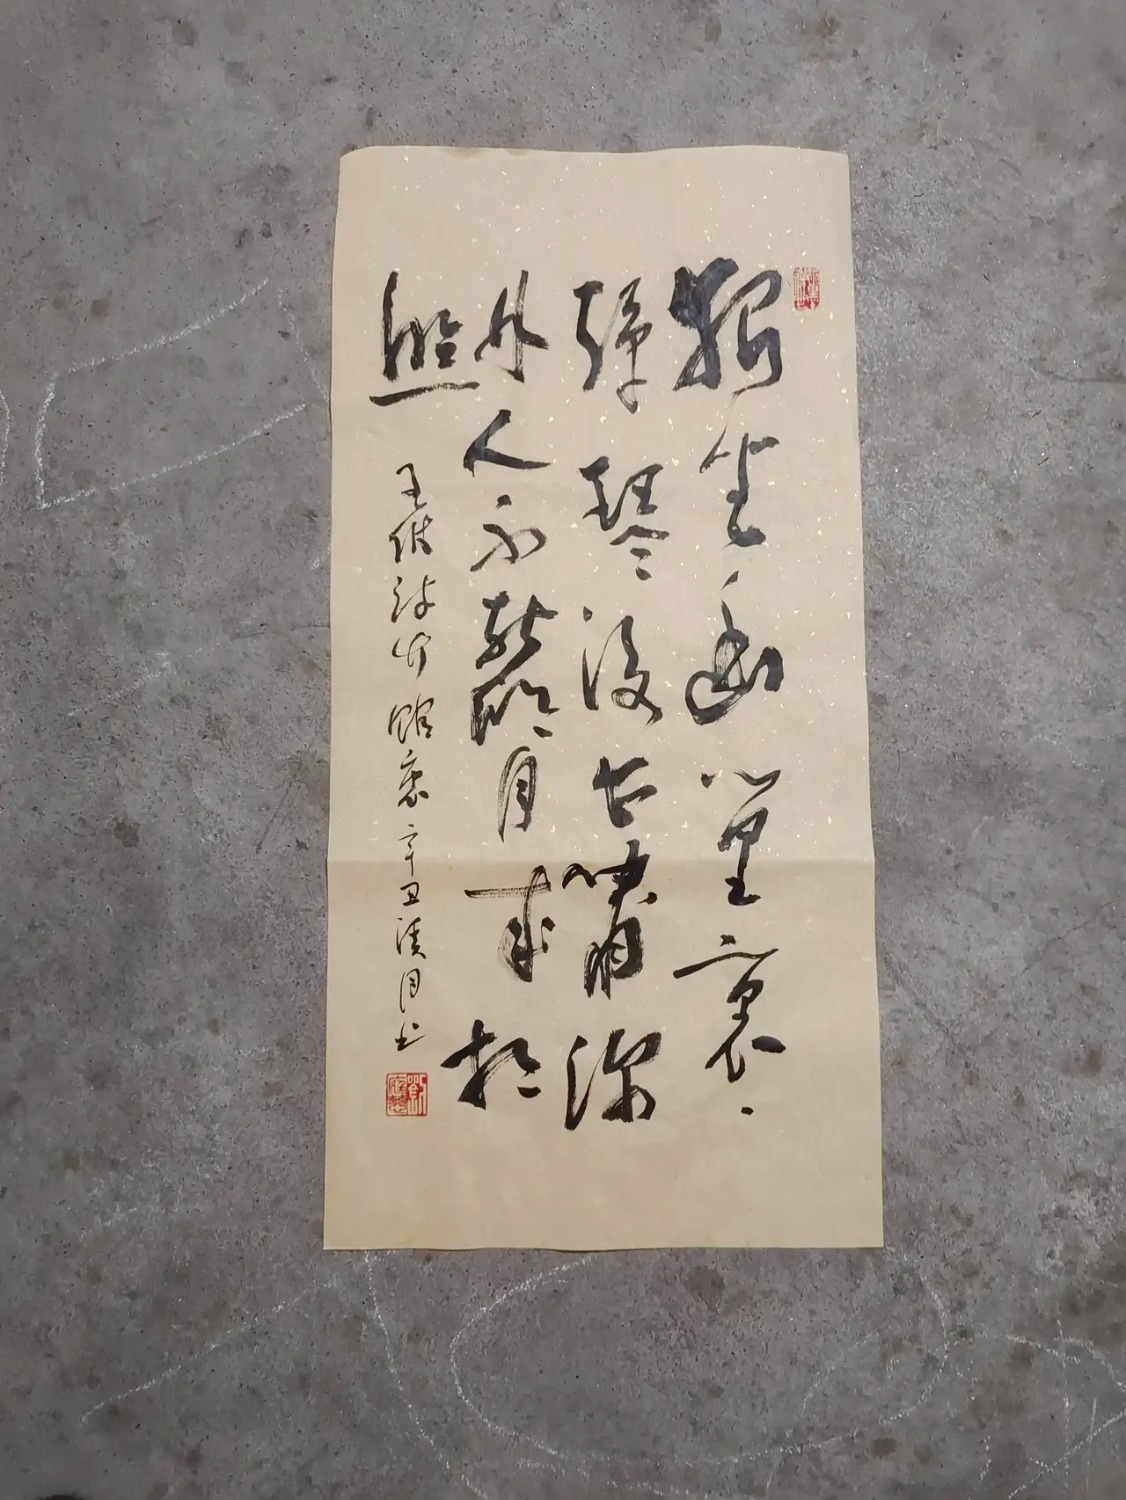 獨坐幽篁裏
彈琴復長嘯深
林人不知明月來相
照
王維詩竹館裏辛丑